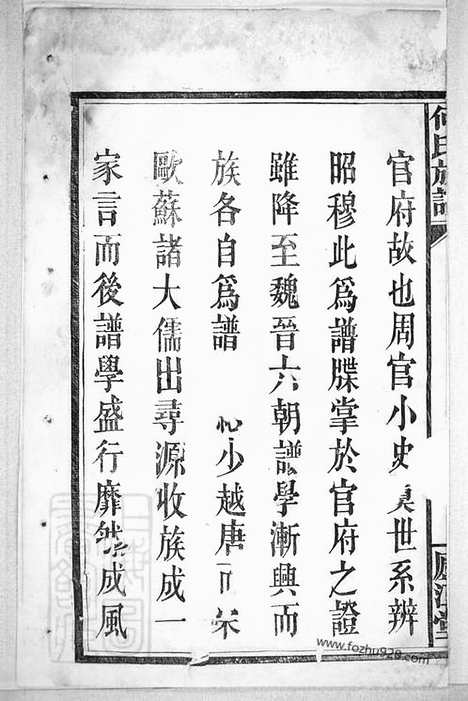 何氏族譜
廬江堂
官府故也周官小史奠世系辨
昭穆此為譜牒掌於官府之證
雖降至魏晉六朝譜學漸興而
族各自為譜 少越唐 宋
歐蘇諸大儒出尋源收族成一
家言而後譜學盛行靡然成風
www.fozhu920.com